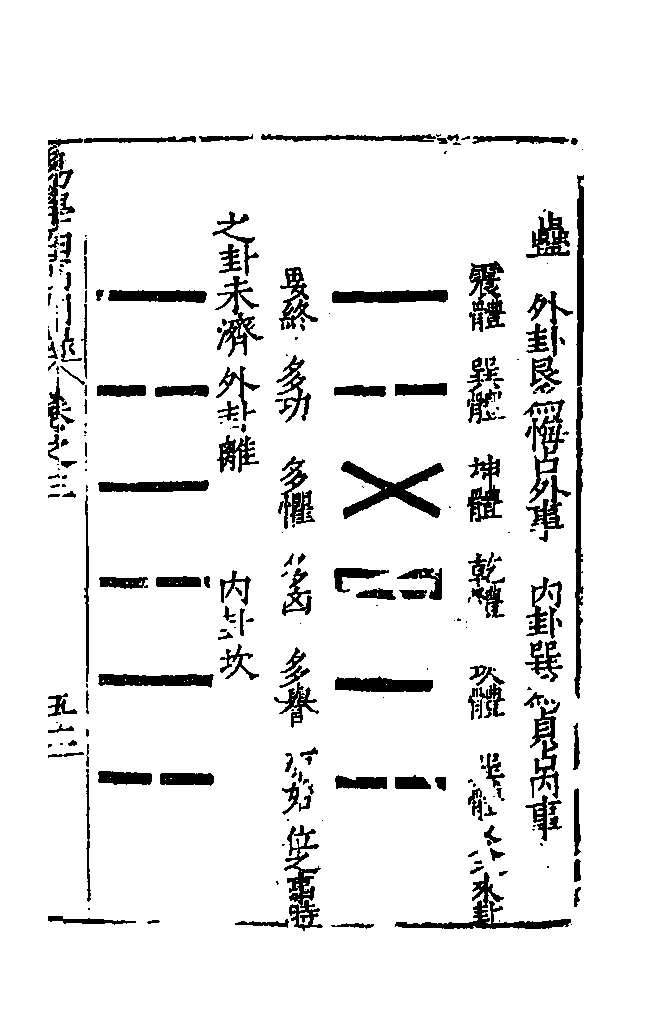 蠱　外卦艮爲悔占外事　內卦巽爲貞占內事
體　巽體　坤體　乾體　坎體　體　來卦
要終　多功　多懼　多凶　多譽　位之當時
之卦未濟　外卦離　內卦坎
易學　卷之三　五十二